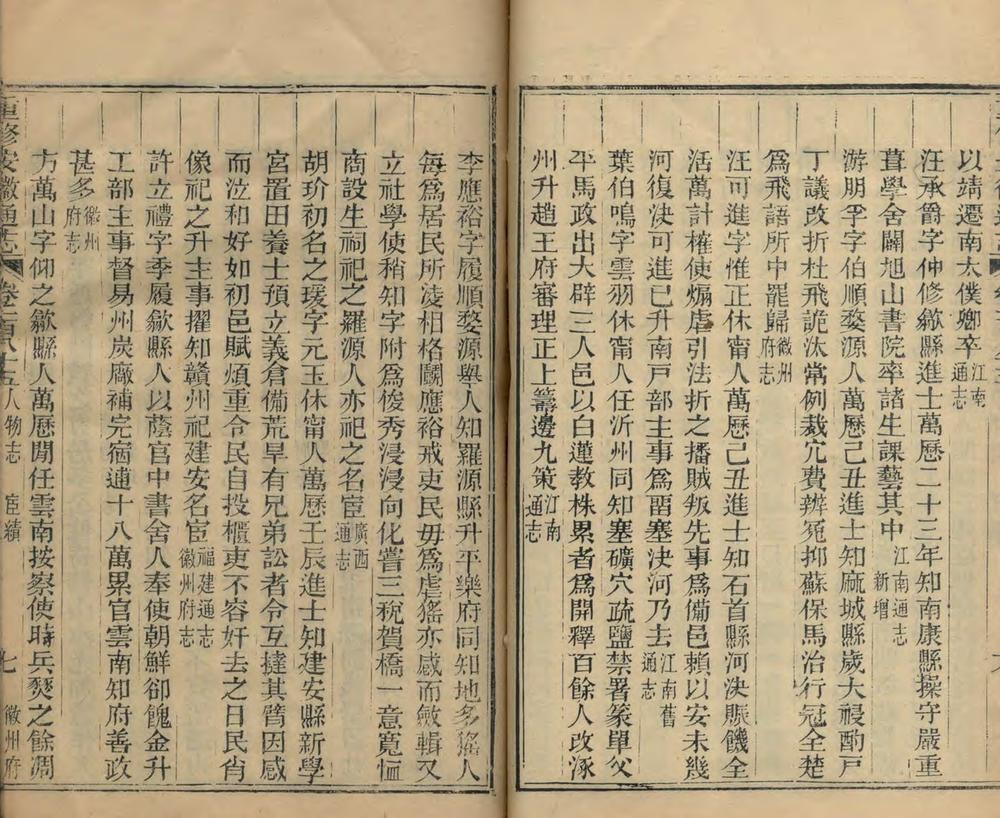 以靖遷南太僕卿卒江南通志
汪承爵字仲修歙縣進士萬歷二十三年知南康縣操守嚴重
葺學舍闢旭山書院率諸生課藝其中江南通志新增
游朋孚字伯順婺源人萬歷己丑進士知麻城縣歲大祲酌戸
丁議改折杜飛詭汰常例裁冗費辨寃抑蘇保馬治行冠全楚
爲飛語所中罷歸徽州府志
汪可進字惟正休甯人萬歷己丑進士知石首縣河決賑饑全
活萬計榷使煽虐引法折之播賊叛先事爲備邑賴以安未幾
河復決可進已升南戸部主事爲畱塞決河乃去江南舊通志
葉伯鳴字雲羽休甯人任沂州同知塞礦穴疏鹽禁署篆單父
平馬政出大辟三人邑以白蓮教株累者爲開釋百餘人改涿
州升趙王府審理正上籌邊九策江南通志
李應裕字履順婺源舉人知羅源縣升平樂府同知地多猺人
每爲居民所淩相格鬭應裕戒吏民毋爲虐猺亦感而斂輯又
立社學使稍知字附爲俊秀浸浸向化嘗三稅賀橋一意寬恤
商設生祠祀之羅源人亦祀之名宦廣西通志
胡玠初名之瑗字元玉休甯人萬歷壬辰進士知建安縣新學
宮置田養士預立義倉備荒旱有兄弟訟者令互撻其臂因感
而泣和好如初邑賦煩重令民自投櫃吏不容奸去之日民肖
像祀之升主事擢知贛州祀建安名宦福建通志徽州府志
許立禮字季履歙縣人以蔭官中書舍人奉使朝鮮卻餽金升
工部主事督易州炭厰補完宿逋十八萬累官雲南知府善政
甚多徽州府志
方萬山字仰之歙縣人萬歷閒任雲南按察使時兵燹之餘凋
重修安徽通志 卷一百八十五 人物志 宦績 七 徽州府